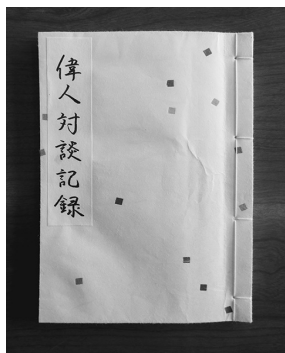 偉人対談記録